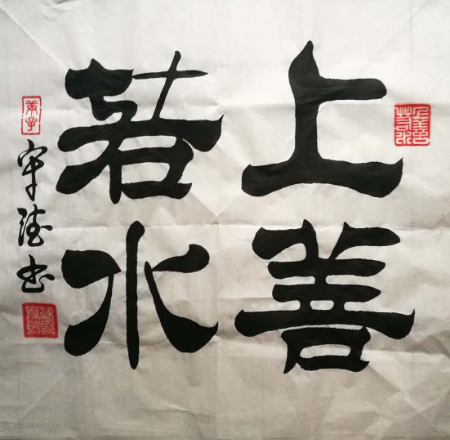 上善
若水
守德书